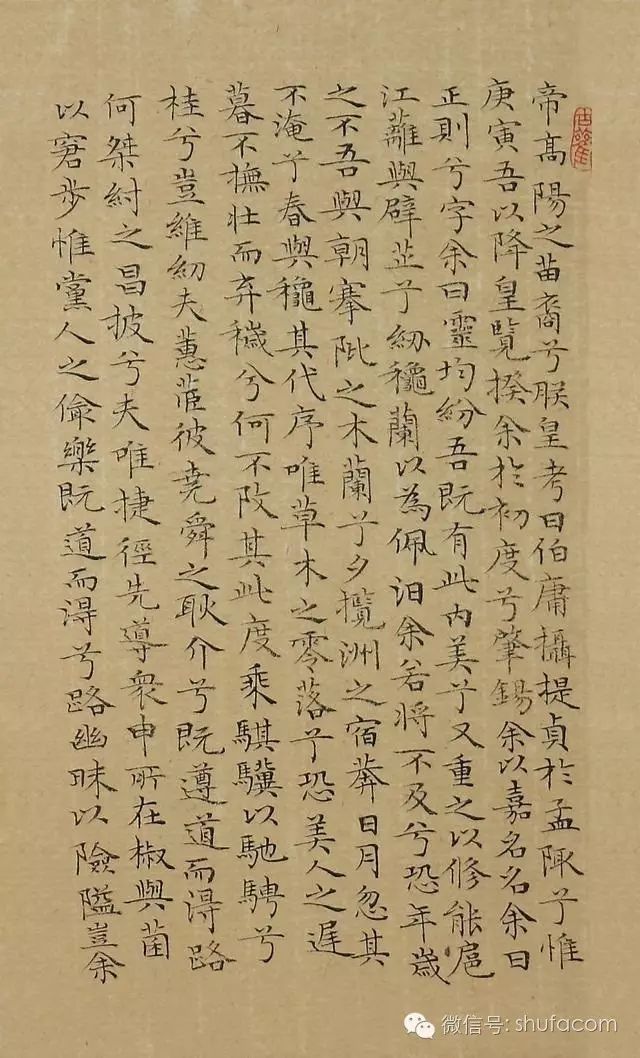 帝高陽之苗裔兮朕皇考曰伯庸攝提貞於孟陬兮惟
庚寅吾以降皇覽揆余於初度兮肇錫余以嘉名名余曰
正則兮字余曰靈均紛吾既有此內美兮又重之以修能扈
江蘺與辟芷兮紉穐蘭以為佩汩余若將不及兮恐年歲
之不吾與朝搴阰之木蘭兮夕攬洲之宿莽日月忽其
不淹兮春與穐其代序唯草木之零落兮恐美人之遲
暮不撫壯而弃穢兮何不改其此度乘騏驥以馳騁兮
桂兮豈維紉夫蕙茝彼堯舜之耿介兮既遵道而得路
何桀紂之昌披兮夫唯捷徑先導衆申所在椒與菌
以窘步惟黨人之偷樂既道而得兮路幽昧以險隘豈余
微信号: shufacom